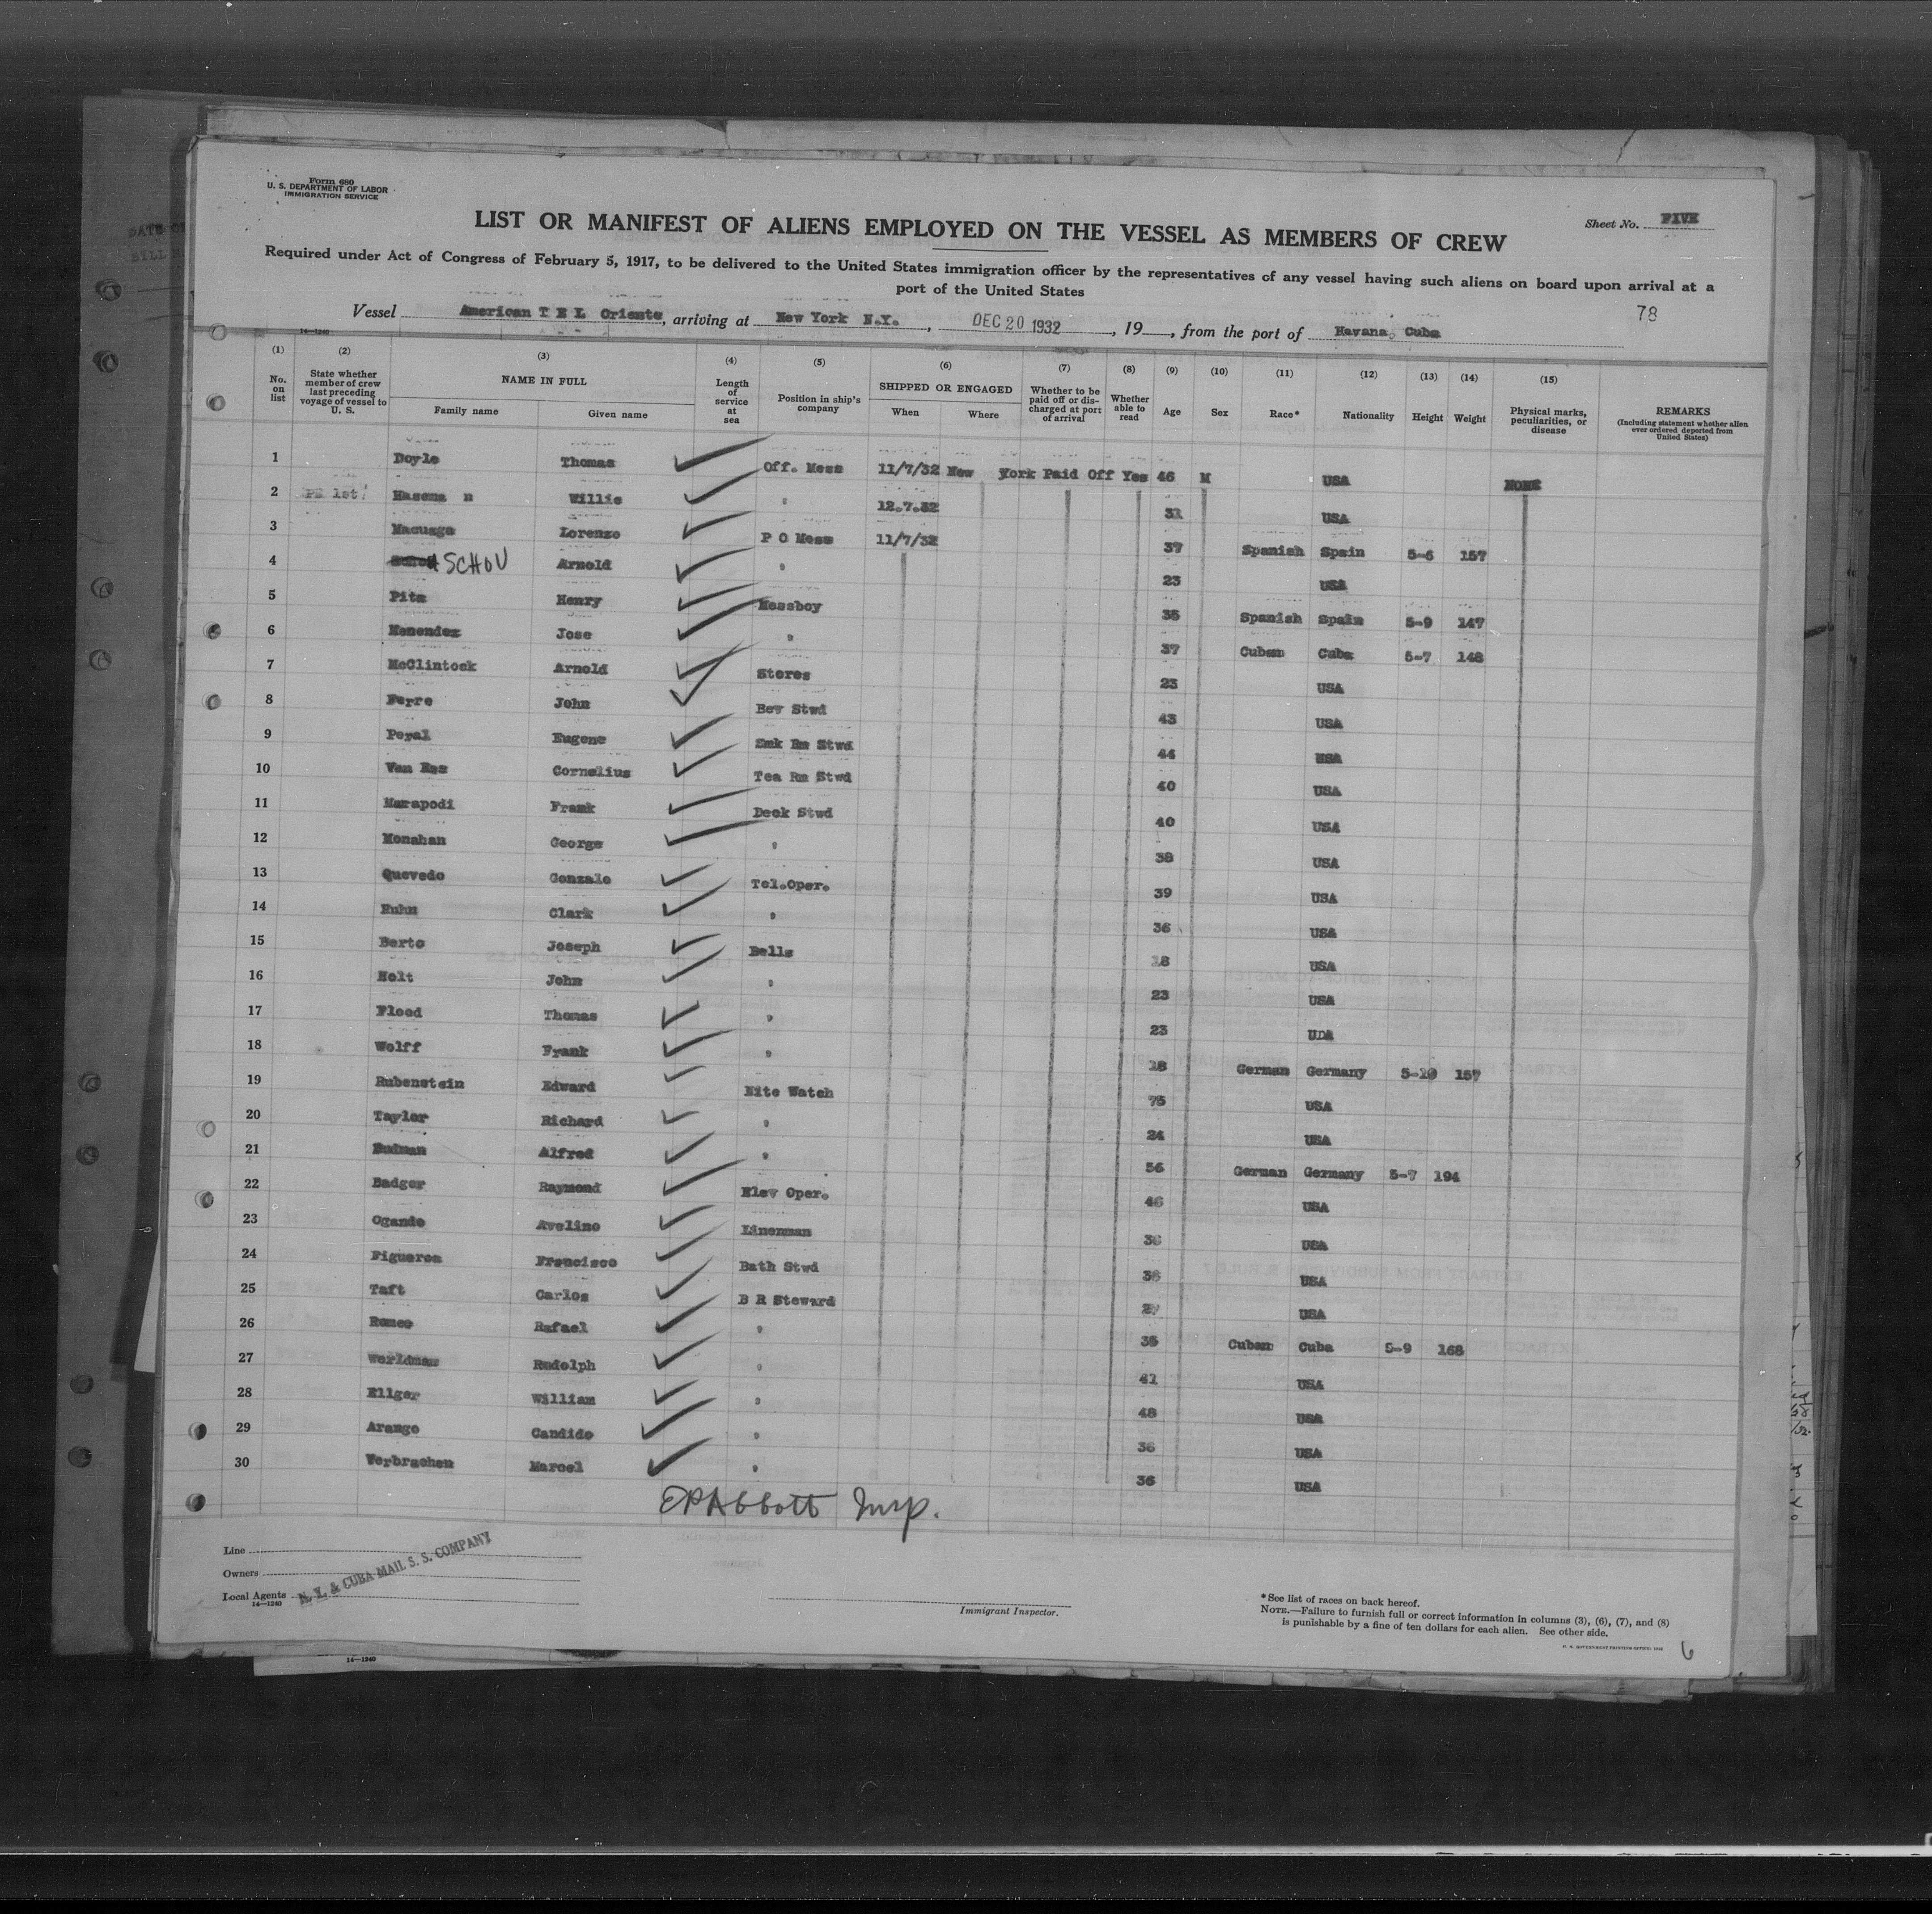 Form 680
U. S. DEPARTMENT OF LABOR
IMMIGRATION SERVICE
Sheet No. FIVE
LIST OR MANIFEST OF ALIENS EMPLOYED ON THE VESSEL AS MEMBERS OF CREW
Required under Act of Congress of February 5, 1917, to be delivered to the United States immigration officer by the representatives of any vessel having such aliens on board upon arrival at a
port of the United States
78
Vessel American T E L Oriente, arriving at New York N.Y., DEC 20 1932, 19, from the port of Havana, Cuba
14—1240
(1) (2) (3) (4) (5) (6) (7) (8) (9) (10) (11) (12) (13) (14) (15)
No. on list State whether member of crew last preceding voyage of vessel to U. S. NAME IN FULL Family name Given name Length of service at sea Position in ship's company SHIPPED OR ENGAGED When Where Whether to be paid off or discharged at port of arrival Whether able to read Age Sex Race* Nationality Height Weight Physical marks, peculiarities, or disease REMARKS (Including statement whether alien ever ordered deported from United States)
1 Doyle Thomas Off. Mess 11/7/32 New York Paid Off Yes 46 M USA NONE
2 1st Hasema n Willie " 12.7.32 31 USA
3 Macugga Lorenzo P O Mess 11/7/32 37 Spanish Spain 5-6 157
4 SCHOU Arnold " 23 USA
5 Pita Henry Messboy 35 Spanish Spain 5-9 147
6 Menendez Jose " 37 Cuban Cuba 5-7 148
7 McClintock Arnold Stores 23 USA
8 Ferro John Bev Stwd 43 USA
9 Poyal Eugene Smk Rm Stwd 44 USA
10 Van Cornelius Tea Rm Stwd 40 USA
11 Marapodi Frank Deck Stwd 40 USA
12 Monahan George " 38 USA
13 Quevedo Gonzalo Tel.Oper. 39 USA
14 Clark " 36 USA
15 Berto Joseph Bells 18 USA
16 Holt John " 23 USA
17 Flood Thomas " 23 UDA
18 Wolff Frank " 18 German Germany 5-10 157
19 Rubenstein Edward Nite Watch 75 USA
20 Taylor Richard " 24 USA
21 Alfred " 56 German Germany 5-7 194
22 Badger Raymond Elev Oper. 46 USA
23 Ogando Avelino Linenman 36 USA
24 Figueroa Francisco Bath Stwd 36 USA
25 Taft Carlos B R Steward USA
26 Rafael " 35 Cuban Cuba 5-9 168
27 Worldman Rudolph " 41 USA
28 Ellger William " 48 USA
29 Arango Candido " 36 USA
30 Verbrachen Marcel " 36 USA
EPAbbott Insp.
Line
Owners
Local Agents N. Y. & CUBA MAIL S. S. COMPANY
14—1240
Immigrant Inspector.
*See list of races on back hereof.
NOTE.—Failure to furnish full or correct information in columns (3), (6), (7), and (8)
is punishable by a fine of ten dollars for each alien. See other side.
6
14—1240